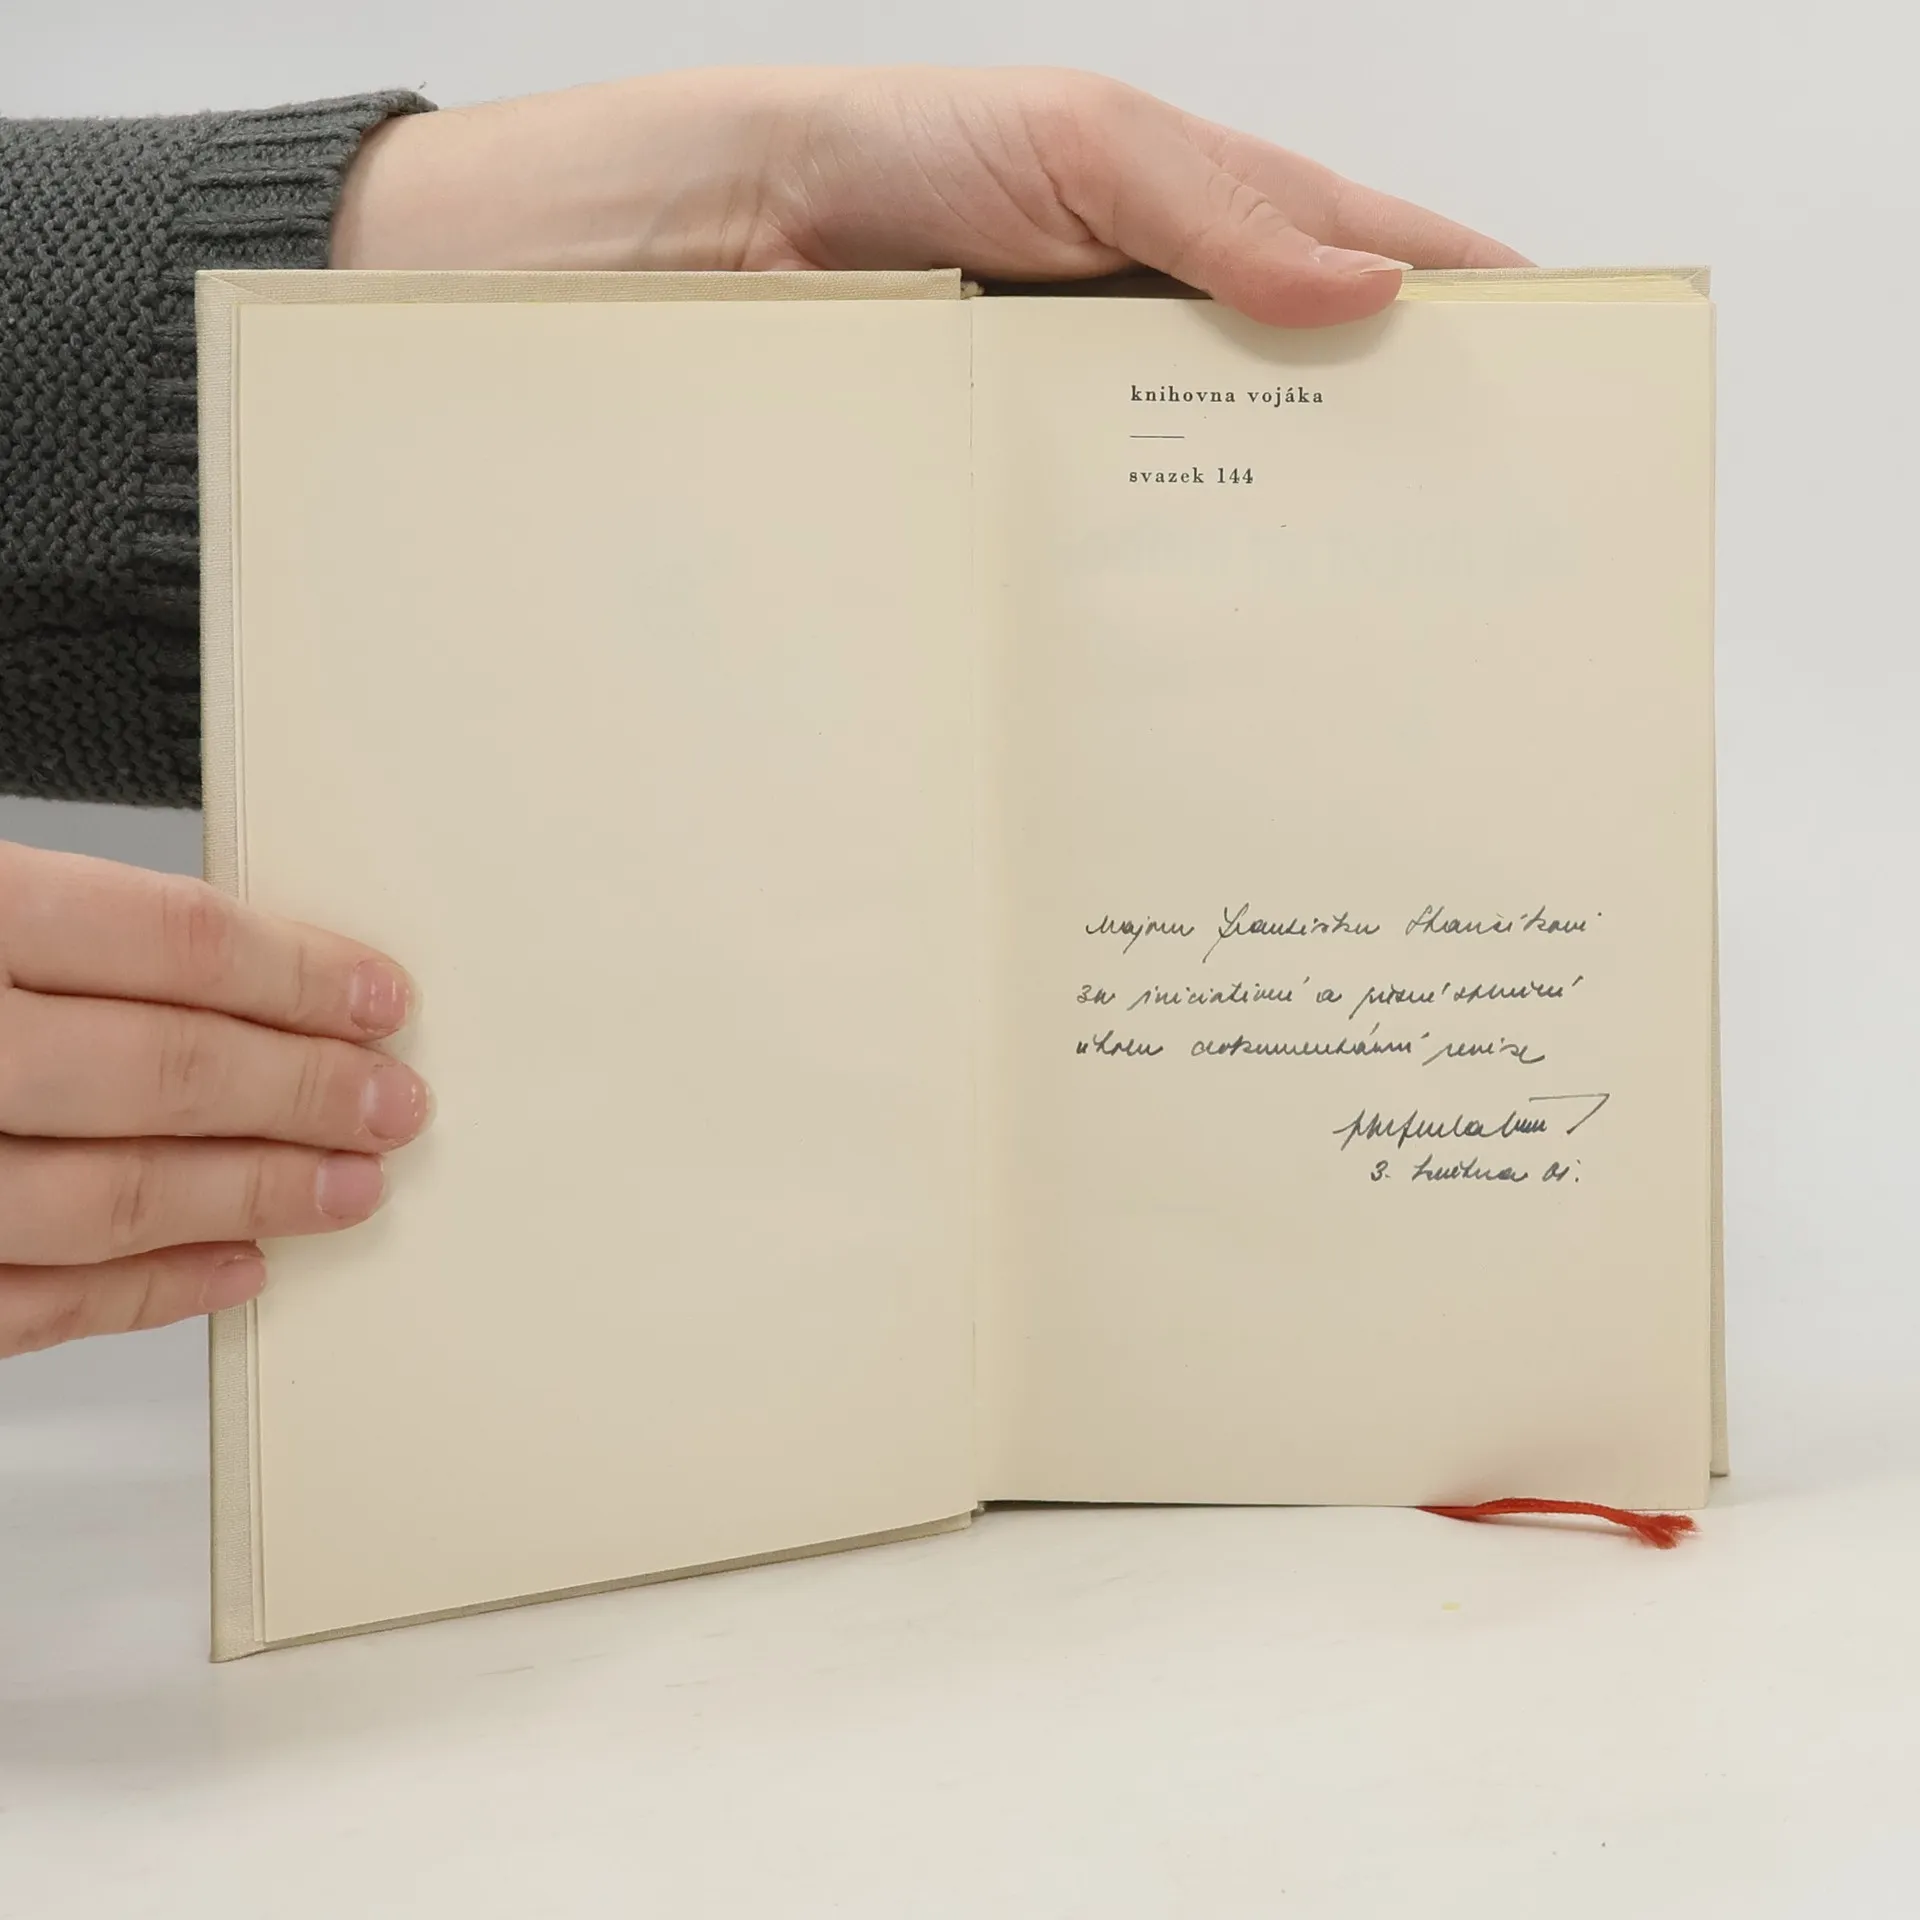 knihovna vojáka
svazek 144
Majoru Františku
za iniciativní a přesné splnění
úkolu dokumentární revize
3. května